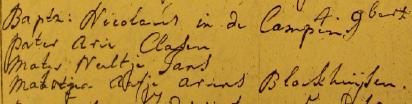 Bapt: Nicolaus in de Campen. 4. 9bert
pater Arie Clasen
Mater Neeltje Jans
Matrina Antje Arens Blockhuijsen.